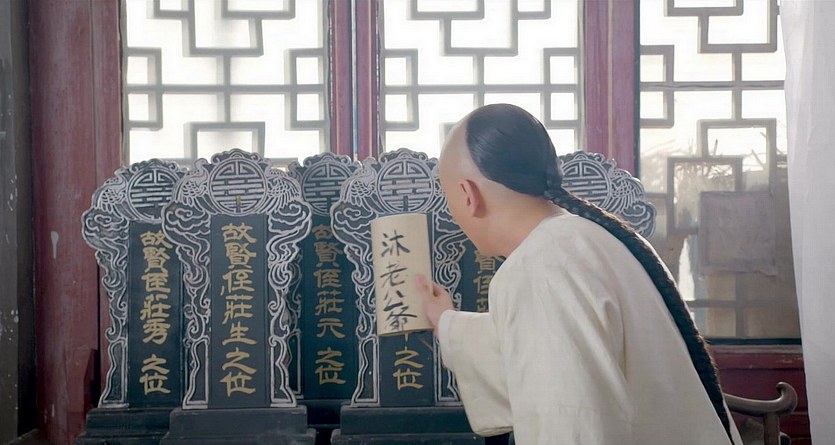 故賢侄莊秀之位
故賢侄莊生之位
故賢侄莊元之位
沐老公爺
之位
賢侄